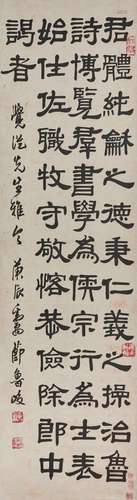 君體純龢之德秉仁義之操治魯
詩博覽羣書學為儒宗行為士表
始仕佐職牧守敬愘恭儉除郎中
謁者
先生雅令 庚辰 節魯峻